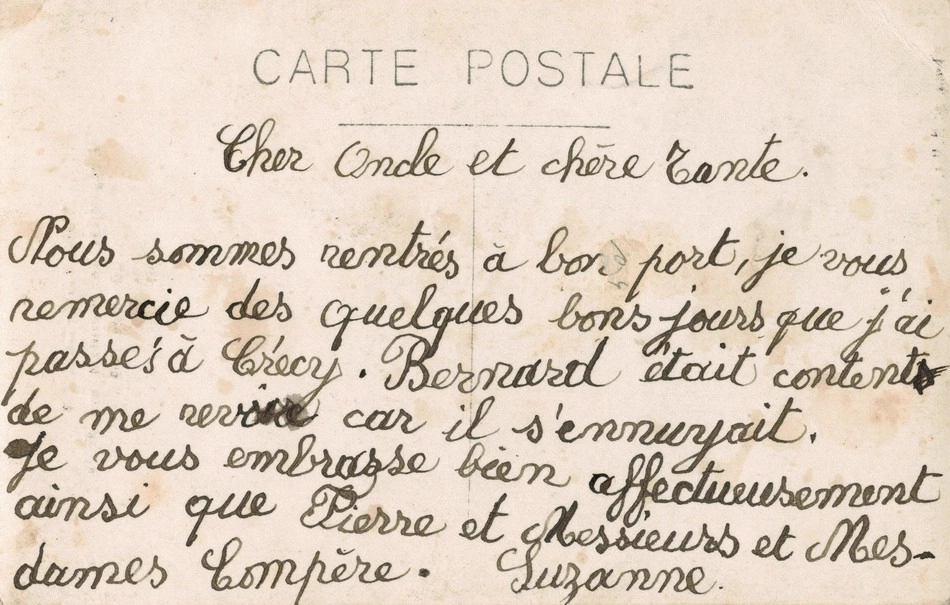 CARTE POSTALE
Cher Oncle et chère Tante.
Nous sommes rentrés à bon port, je vous
remercie des quelques bons jours que j'ai
passés à Crécy. Bernard était content
de me revoir car il s'ennuyait.
Je vous embrasse bien affectueusement
ainsi que Pierre et Messieurs et Mes-
dames Compère. Suzanne.